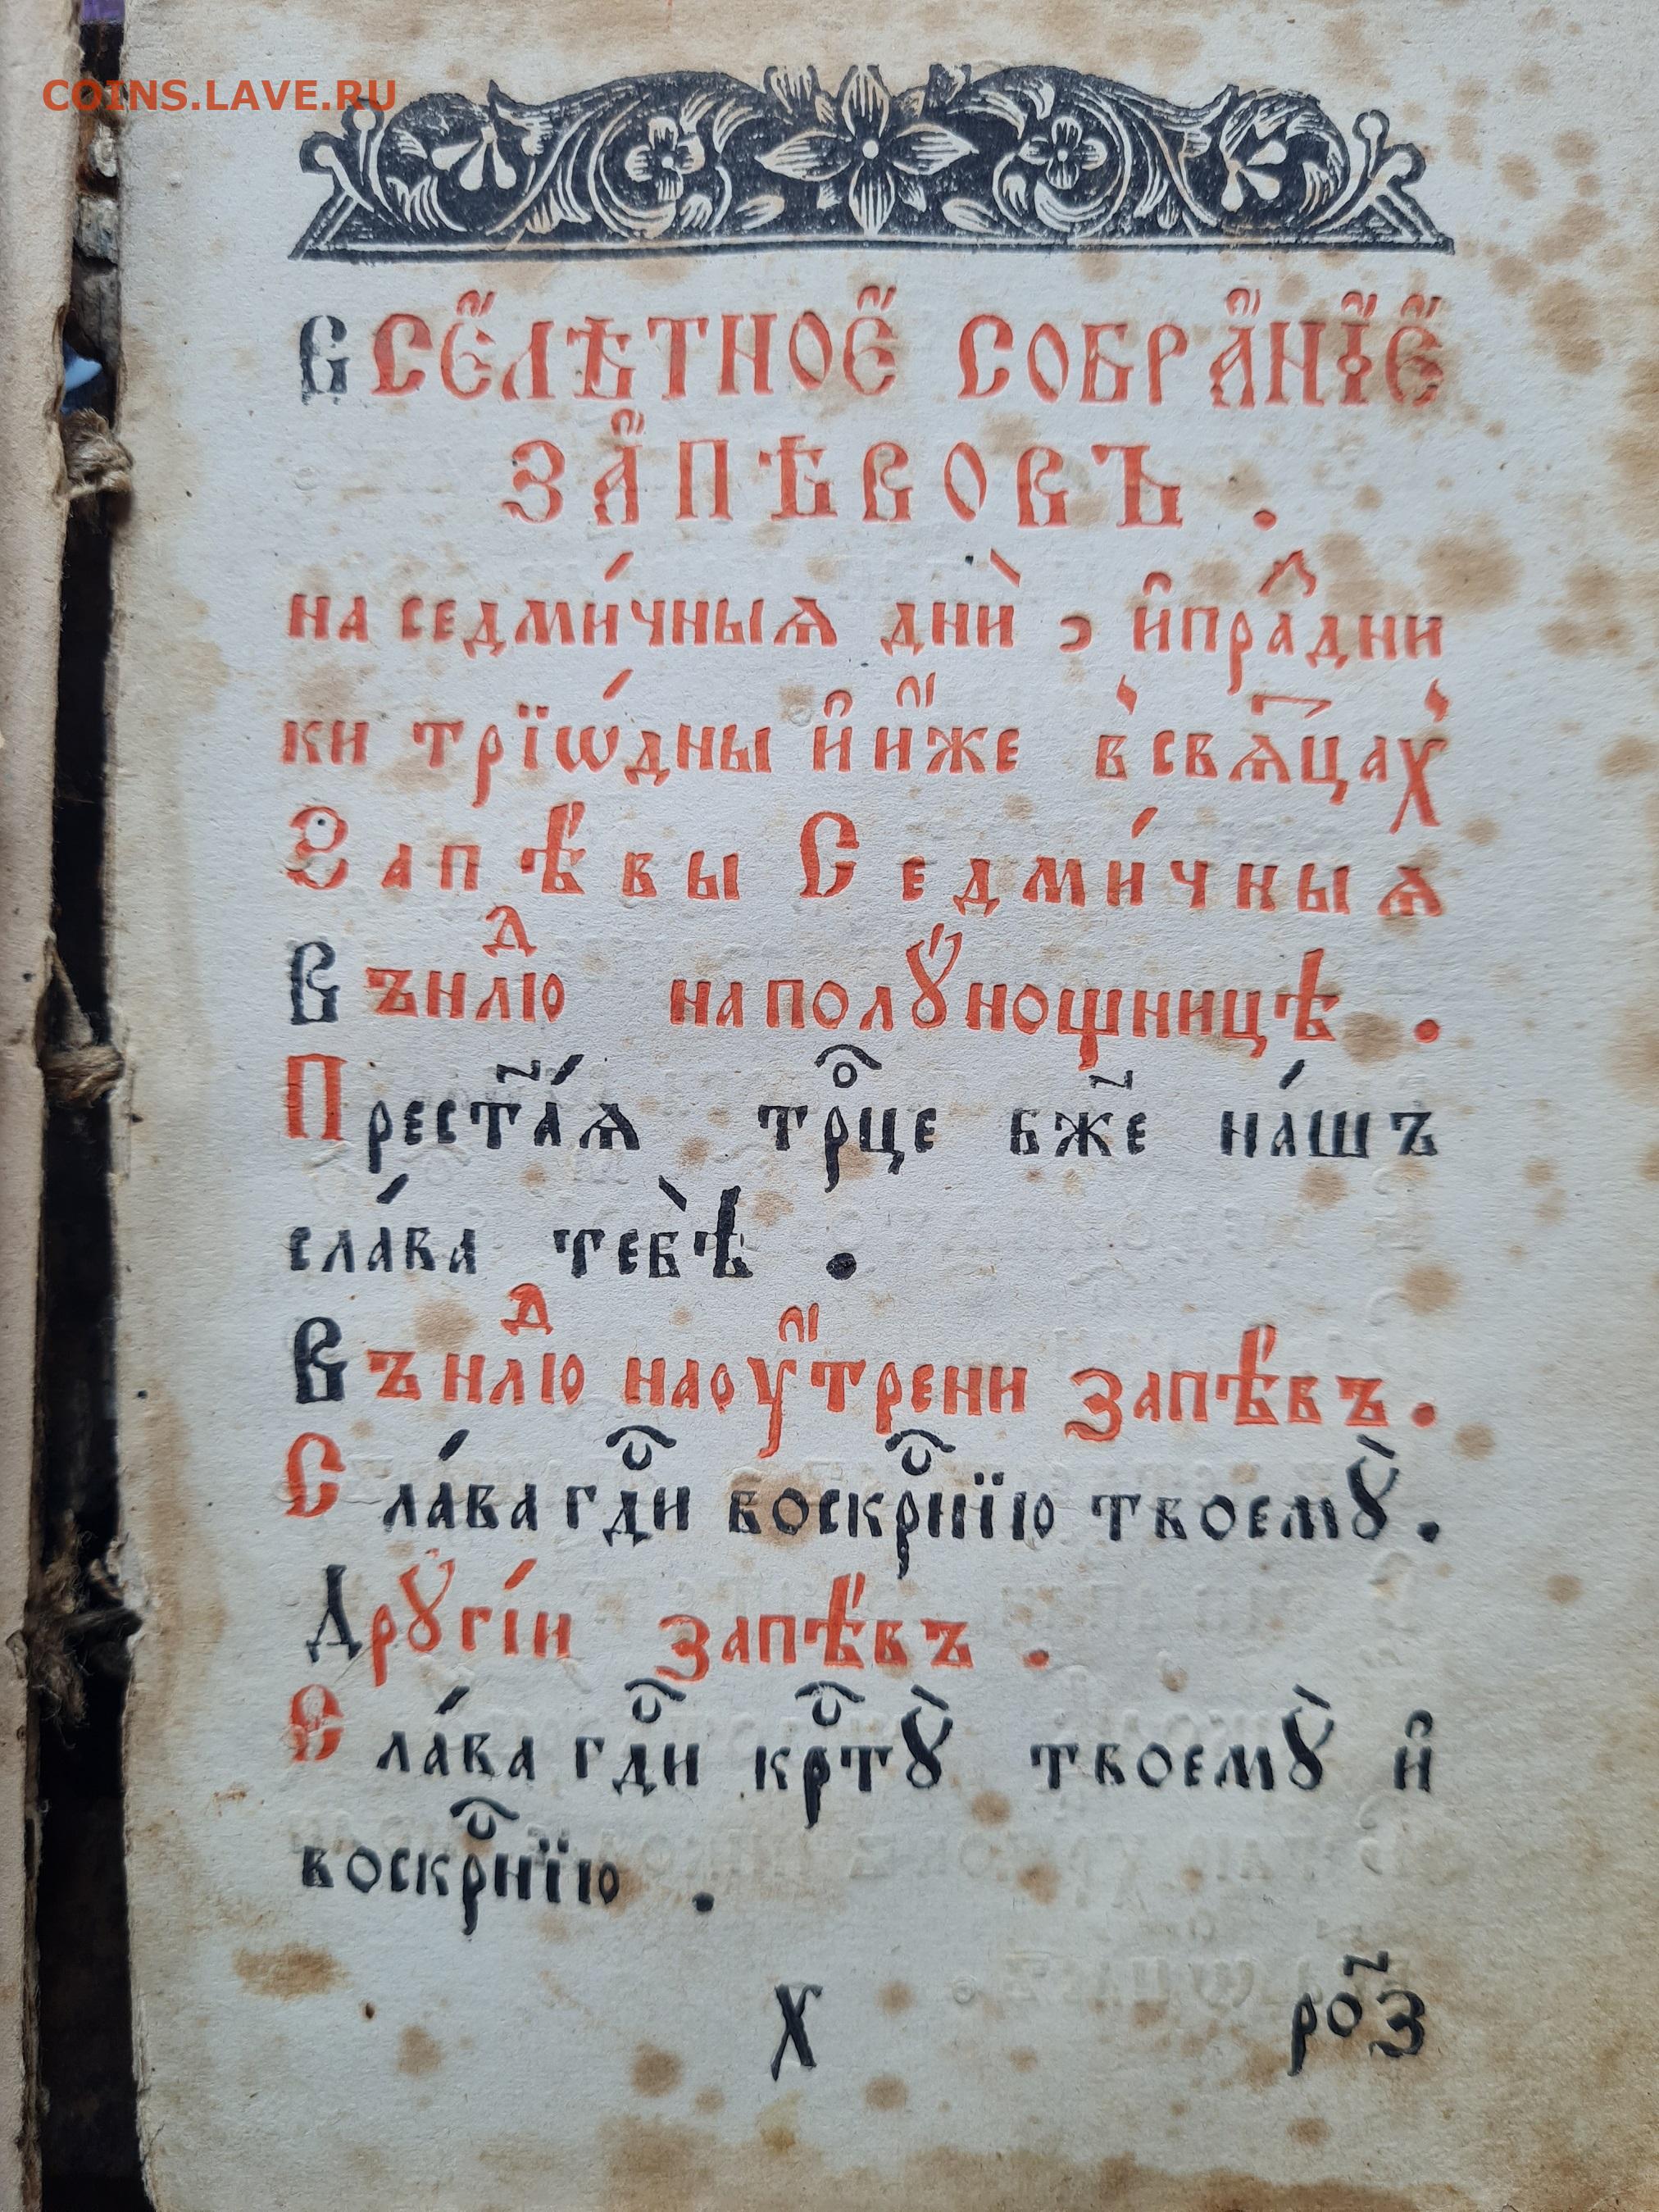 COINS.LAVE.RU
ВСЕ҆́ЛѢТНОЕ҆́ СОБРА҆́НЇ҆́Е҆́
ЗА҆́ПѢВОВЪ .
на седми́чныѧ днѝ , и҆пра́дни
ки трїѡ́дны и҆ и҆́же в̾свѧ҃цах̾
Запѣ́вы Седми́чныѧ
Въ нⷣлю наполꙋ́нощницѣ .
Прест҃а́ѧ трⷪ҇це бж҃е на́шъ
сла́ва тебѣ̀ .
Въ нⷣлю наоу҆́трени запѣ́въ .
Сла́ва гдⷭ҇и воскрⷭ҇нїю твоемꙋ̀ .
Дрꙋгі́и запѣ́въ .
Сла́ва гдⷭ҇и крⷭ҇тꙋ̀ твоемꙋ̀ и҆
воскрⷭ҇нїю .
Х
ро҃з